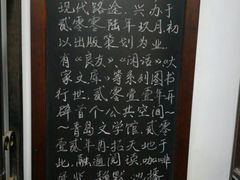 现代路途，兴办于
贰零零陆年玖月，初
以出版策划为业．
有《良友》、《闲话》《大
家文库》等系列图书
行世．贰零壹壹年开
辟首个公共空间～
～青岛文学馆，贰零
壹贰年内拓天地于
此，融通阅读、咖啡